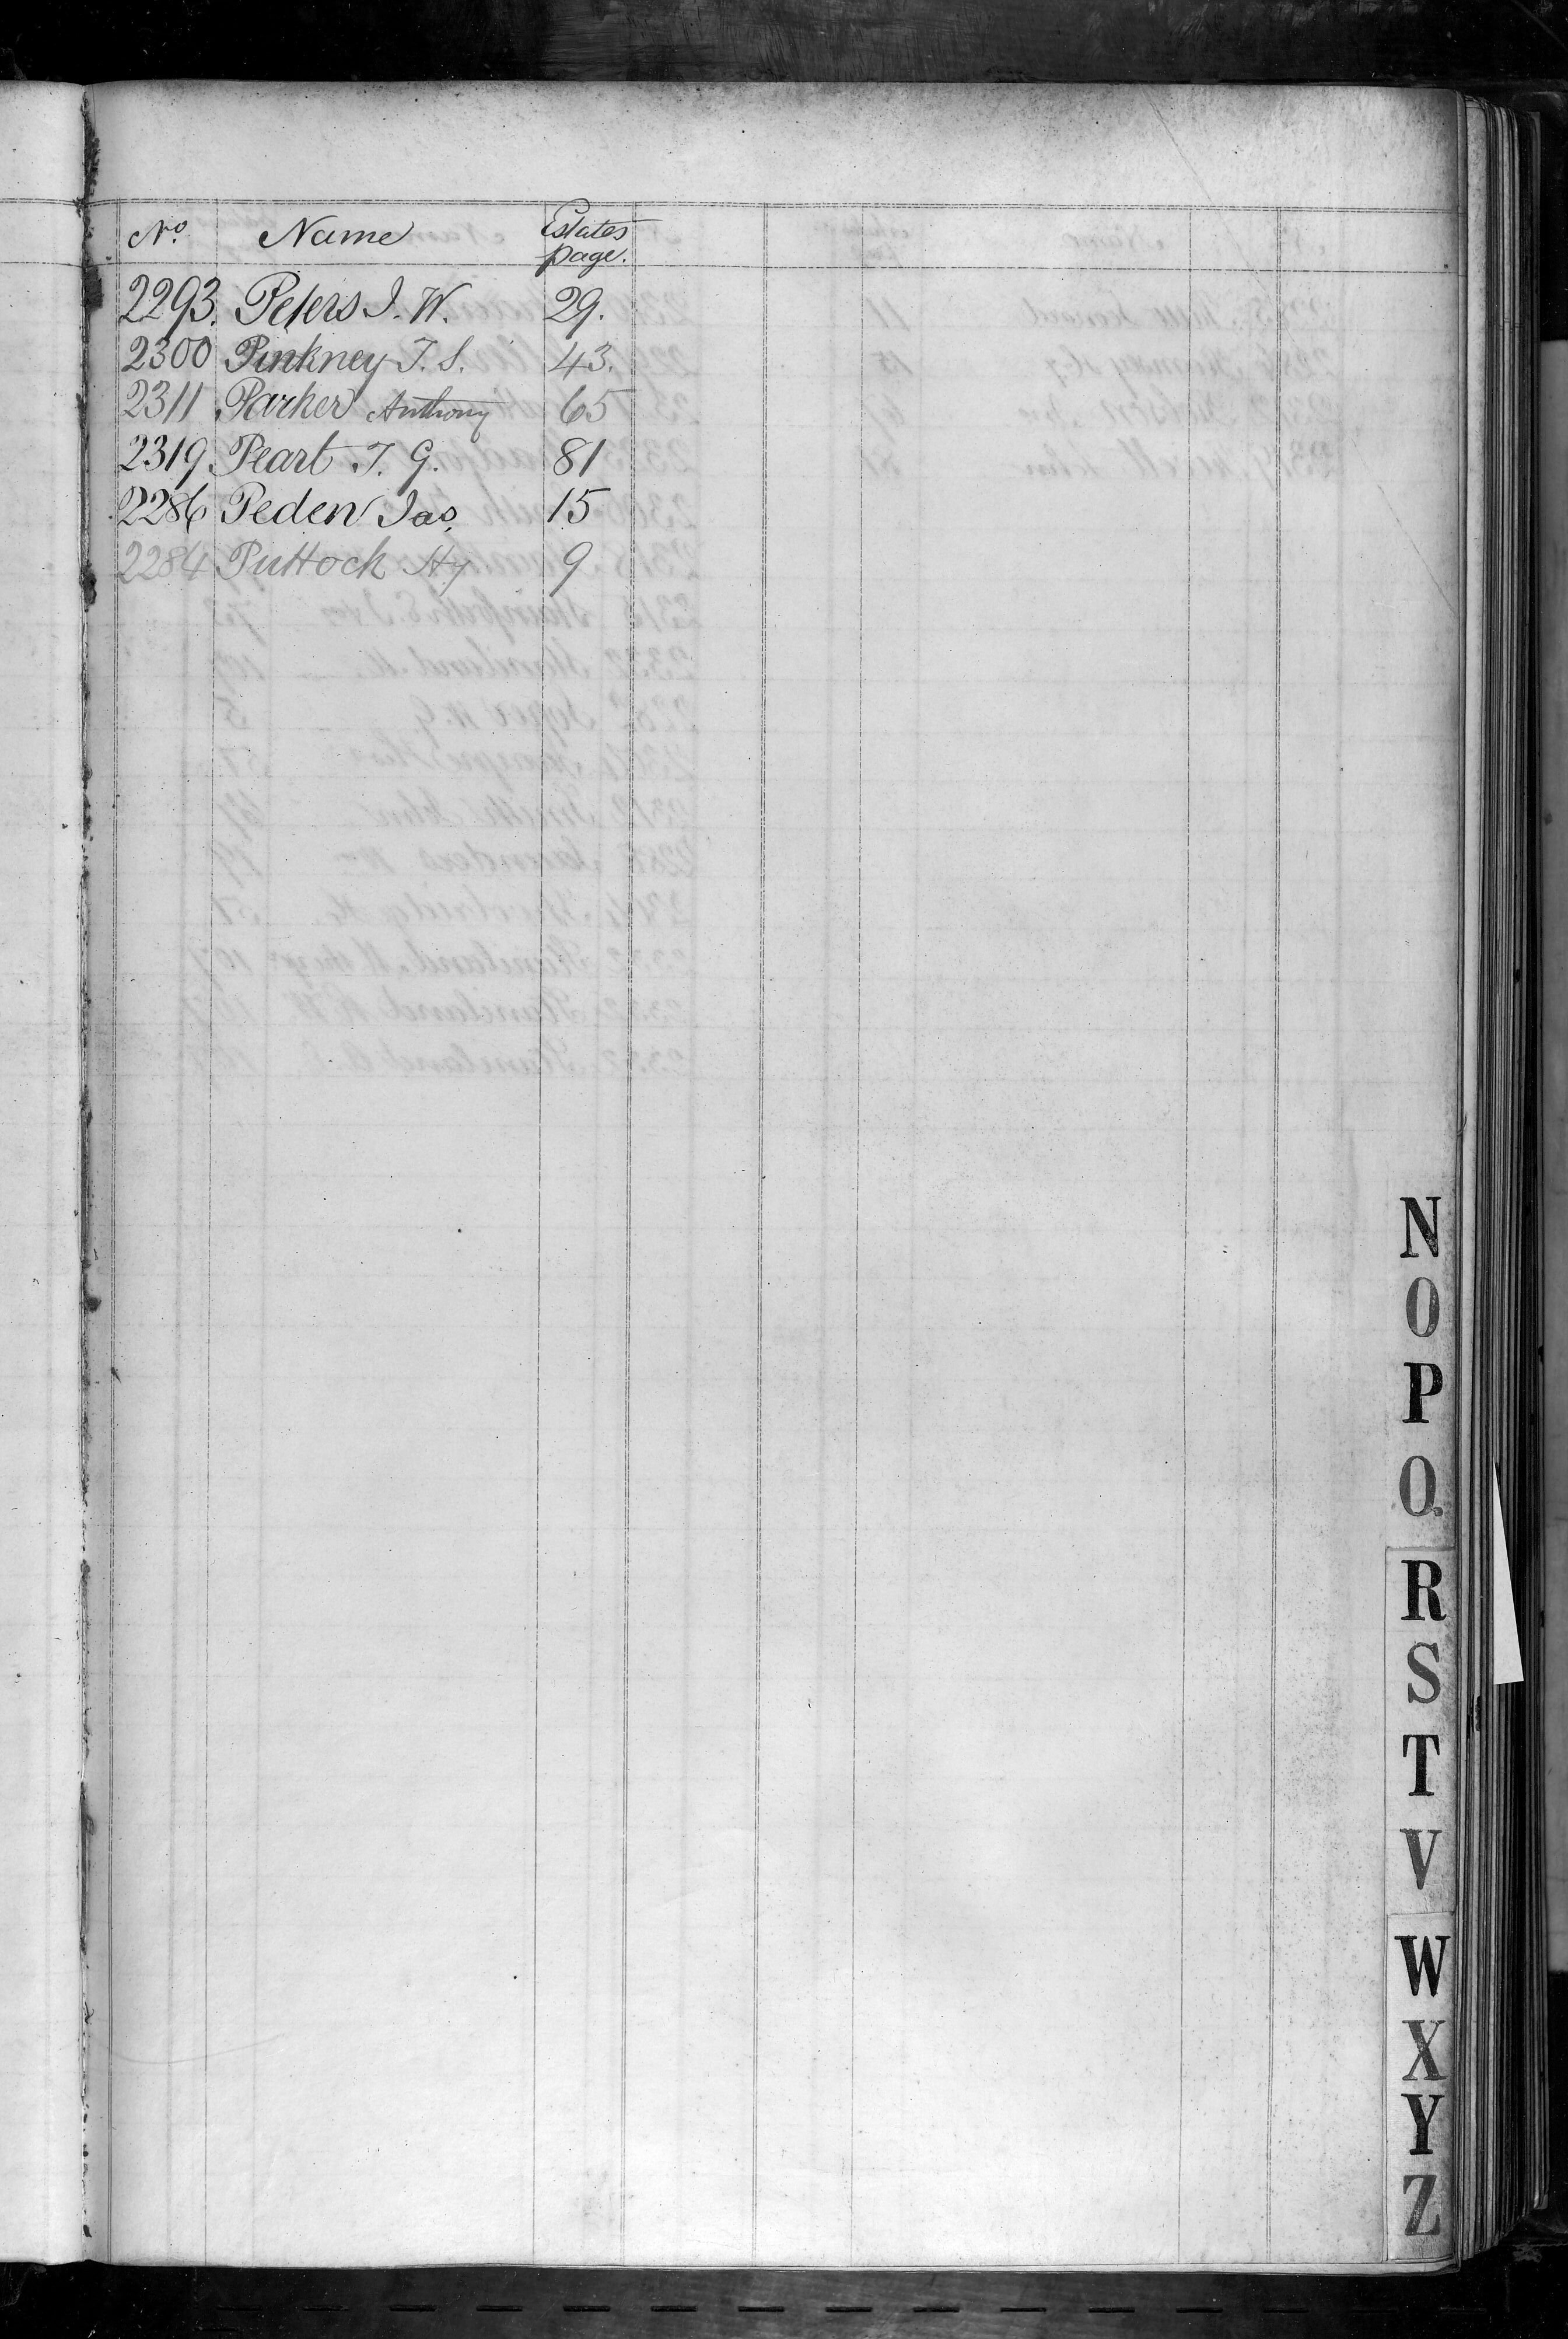 No. Name Estates page.
2293. Peters J. W. 29.
2300 Pinkney T. S. 43.
2311 Parker Anthony 65
2319 Peart T. G. 81
2286 Peden Jas. 15
2284 Puttock Hy 9
N
O
P
Q
R
S
T
V
W
X
Y
Z